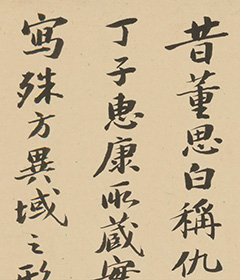 昔董思白稱仇
丁子惠康所藏實
寫殊方異域之形